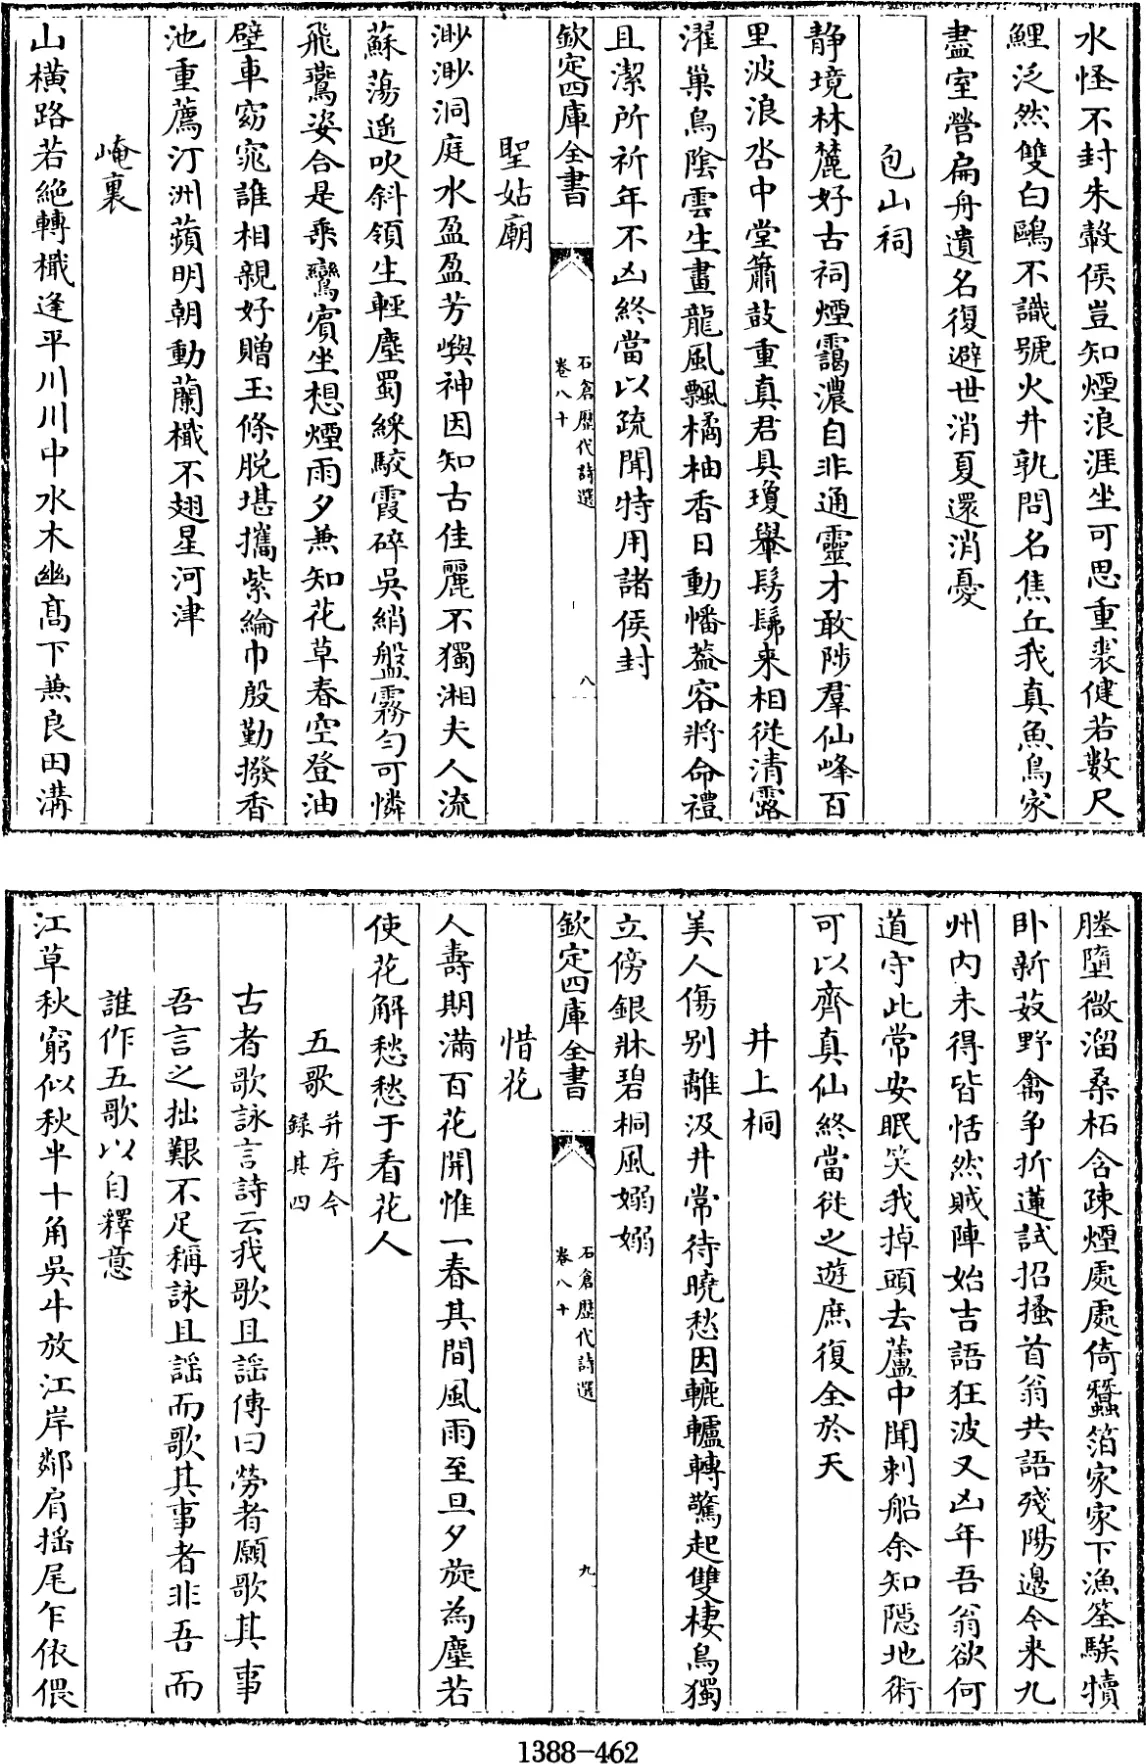 水怪不封朱瞉侯豈知煙浪涯坐可思重裘健若數尺
鯉泛然雙白鷗不識號火井孰問名焦丘我真魚鳥家
盡室營扁舟遺名復避世消夏還消憂
包山祠
静境林麓好古祠煙靄濃自非通靈才敢陟羣仙峰百
里波浪沓中堂簫鼓重真君具瓊轝髣髴來相從清露
濯巢鳥陰雲生晝龍風飄橘柚香日動幡葢容將命禮
且潔所祈年不凶終當以疏聞特用諸侯封
欽定四庫全書
石倉歷代詩選
卷八十
八
聖姑廟
渺渺洞庭水盈盈芳嶼神因知古佳麗不獨湘夫人流
蘇蕩遥吹斜領生輕塵蜀綵駮霞碎吳綃盤霧勻可憐
飛鷰姿合是乘鸞賓坐想煙雨夕兼知花草春空登油
壁車窈窕誰相親好贈玉條脱堪攜紫綸巾殷勤撥香
池重薦汀洲蘋明朝動蘭檝不翅星河津
崦裏
山横路若絶轉檝逢平川川中水木幽高下兼良田溝
塍墮微溜桑柘含疎煙處處倚蠶箔家家下漁筌騃犢
卧新䒠野禽爭折蓮試招搔首翁共語殘陽邊今來九
州内未得皆恬然賊陣始吉語狂波又凶年吾翁欲何
道守此常安眠笑我掉頭去蘆中聞刺船余知隱地術
可以齊真仙終當從之遊庶復全於天
井上桐
美人傷别離汲井常待曉愁因轆轤轉驚起雙棲鳥獨
立傍銀牀碧桐風嫋嫋
欽定四庫全書
石倉歷代詩選
卷八十
九
惜花
人壽期滿百花開惟一春其間風雨至旦夕旋為塵若
使花解愁愁于看花人
五歌并序今録其四
古者歌詠言詩云我歌且謡傳曰勞者願歌其事
吾言之拙艱不足稱詠且謡而歌其事者非吾而
誰作五歌以自釋意
江草秋窮似秋半十角吳牛放江岸鄰肩摇尾乍依偎
1388-462